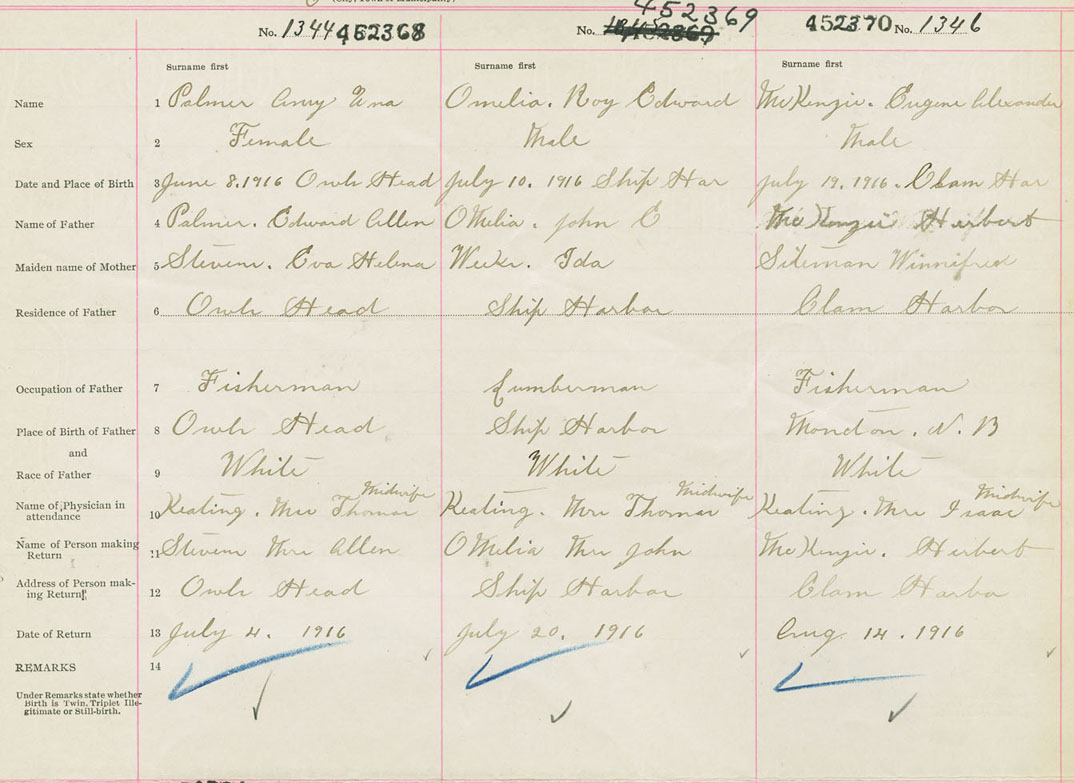 No. 1344 452368 No. 452369 452370 No. 1346
Surname first Surname first Surname first
Name 1 Palmer Amy Una Omelia. Roy Edward McKenzie. Eugene Alexander
Sex 2 Female Male Male
Date and Place of Birth 3 June 8. 1916 Owls Head July 10. 1916 Ship Har July 19. 1916. Clam Har
Name of Father 4 Palmer. Edward Allen OMelia. John E McKenzie Herbert
Maiden name of Mother 5 Stevens. Eva Helena Weeks. Ida Siteman Winnifred
Residence of Father 6 Owls Head Ship Harbor Clam Harbor
Occupation of Father 7 Fisherman Lumberman Fisherman
Place of Birth of Father 8 Owls Head Ship Harbor Moncton. N. B
and
Race of Father 9 White White White
Midwife Midwife Midwife
Name of Physician in attendance 10 Keating. Mrs Thomas Keating. Mrs Thomas Keating. Mrs Isaac
Name of Person making Return 11 Stevens Mrs Allen OMelia Mrs John McKenzie. Herbert
Address of Person mak-
ing Return 12 Owls Head Ship Harbor Clam Harbo
Date of Return 13 July 4. 1916 July 20. 1916 Aug. 14. 1916
REMARKS 14
Under Remarks state whether
Birth is Twin, Triplet Ille-
gitimate or Still-birth.